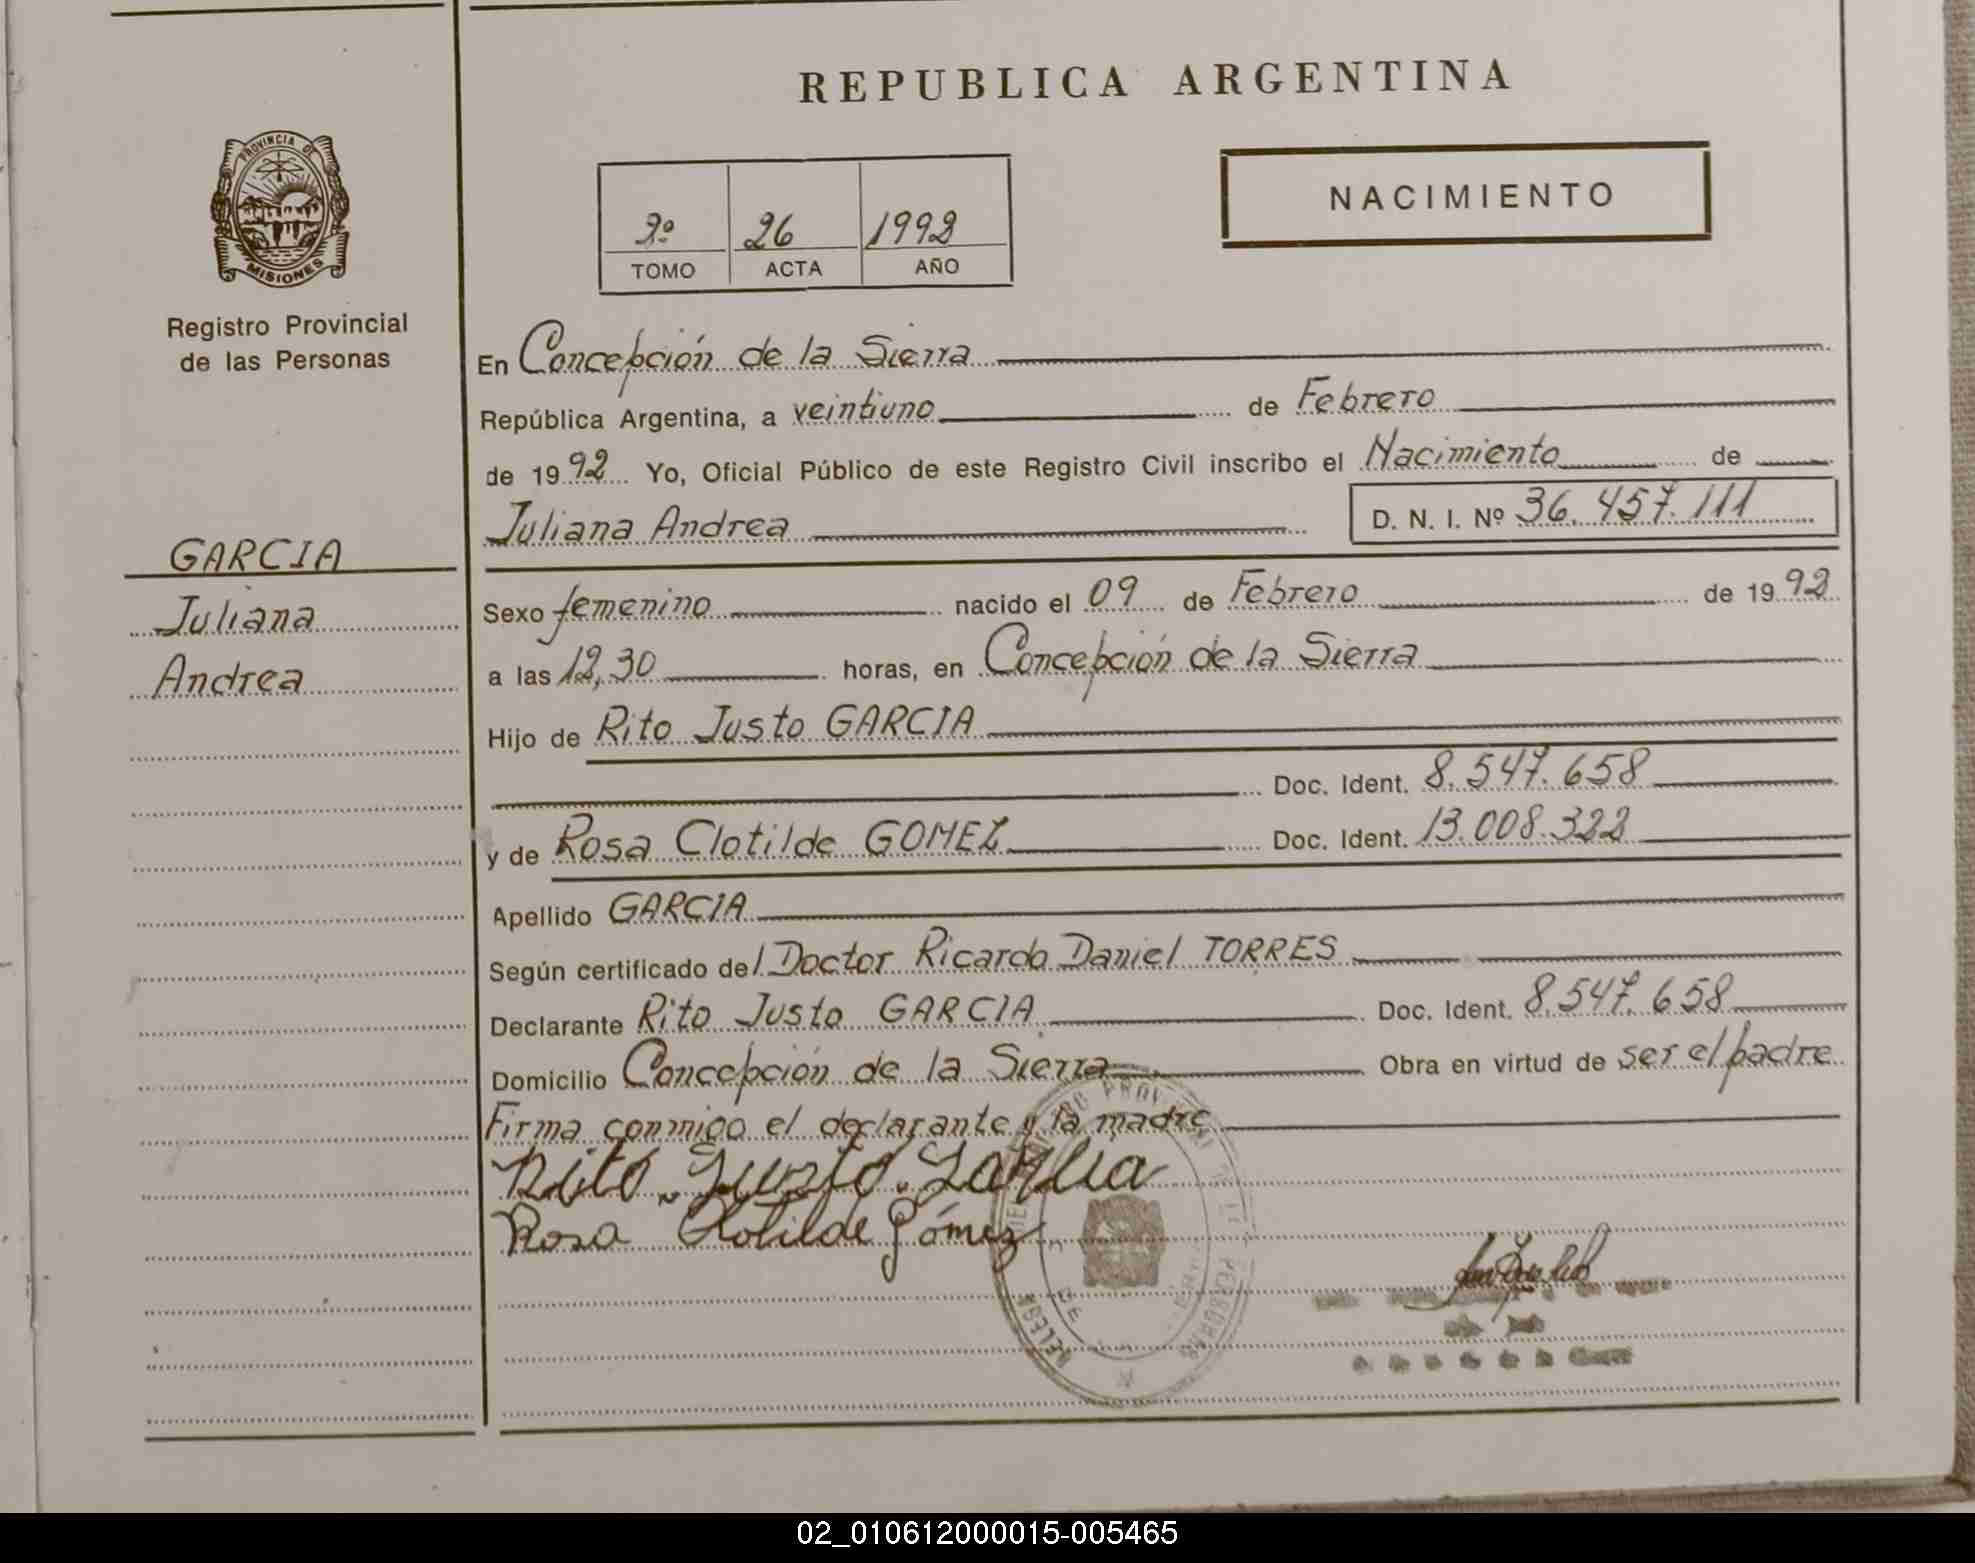 REPUBLICA ARGENTINA
PROVINCIA DE
MISIONES
Registro Provincial
de las Personas
2º 26 1992
TOMO ACTA AÑO
NACIMIENTO
En Concepción de la Sierra
República Argentina, a veintiuno de Febrero
de 1992 Yo, Oficial Público de este Registro Civil inscribo el Nacimiento de
Juliana Andrea D. N. I. Nº 36.457.111
GARCIA
Juliana
Andrea
Sexo femenino nacido el 09 de Febrero de 1992
a las 12,30 horas, en Concepción de la Sierra
Hijo de Rito Justo GARCIA
Doc. Ident. 8.547.658
y de Rosa Clotilde GOMEZ Doc. Ident. 13.008.322
Apellido GARCIA
Según certificado del Doctor Ricardo Daniel TORRES
Declarante Rito Justo GARCIA Doc. Ident. 8.547.658
Domicilio Concepción de la Sierra Obra en virtud de ser el padre
Firma conmigo el declarante y la madre
Rito Justo Garcia
Rosa Clotilde Gómez
02_010612000015-005465